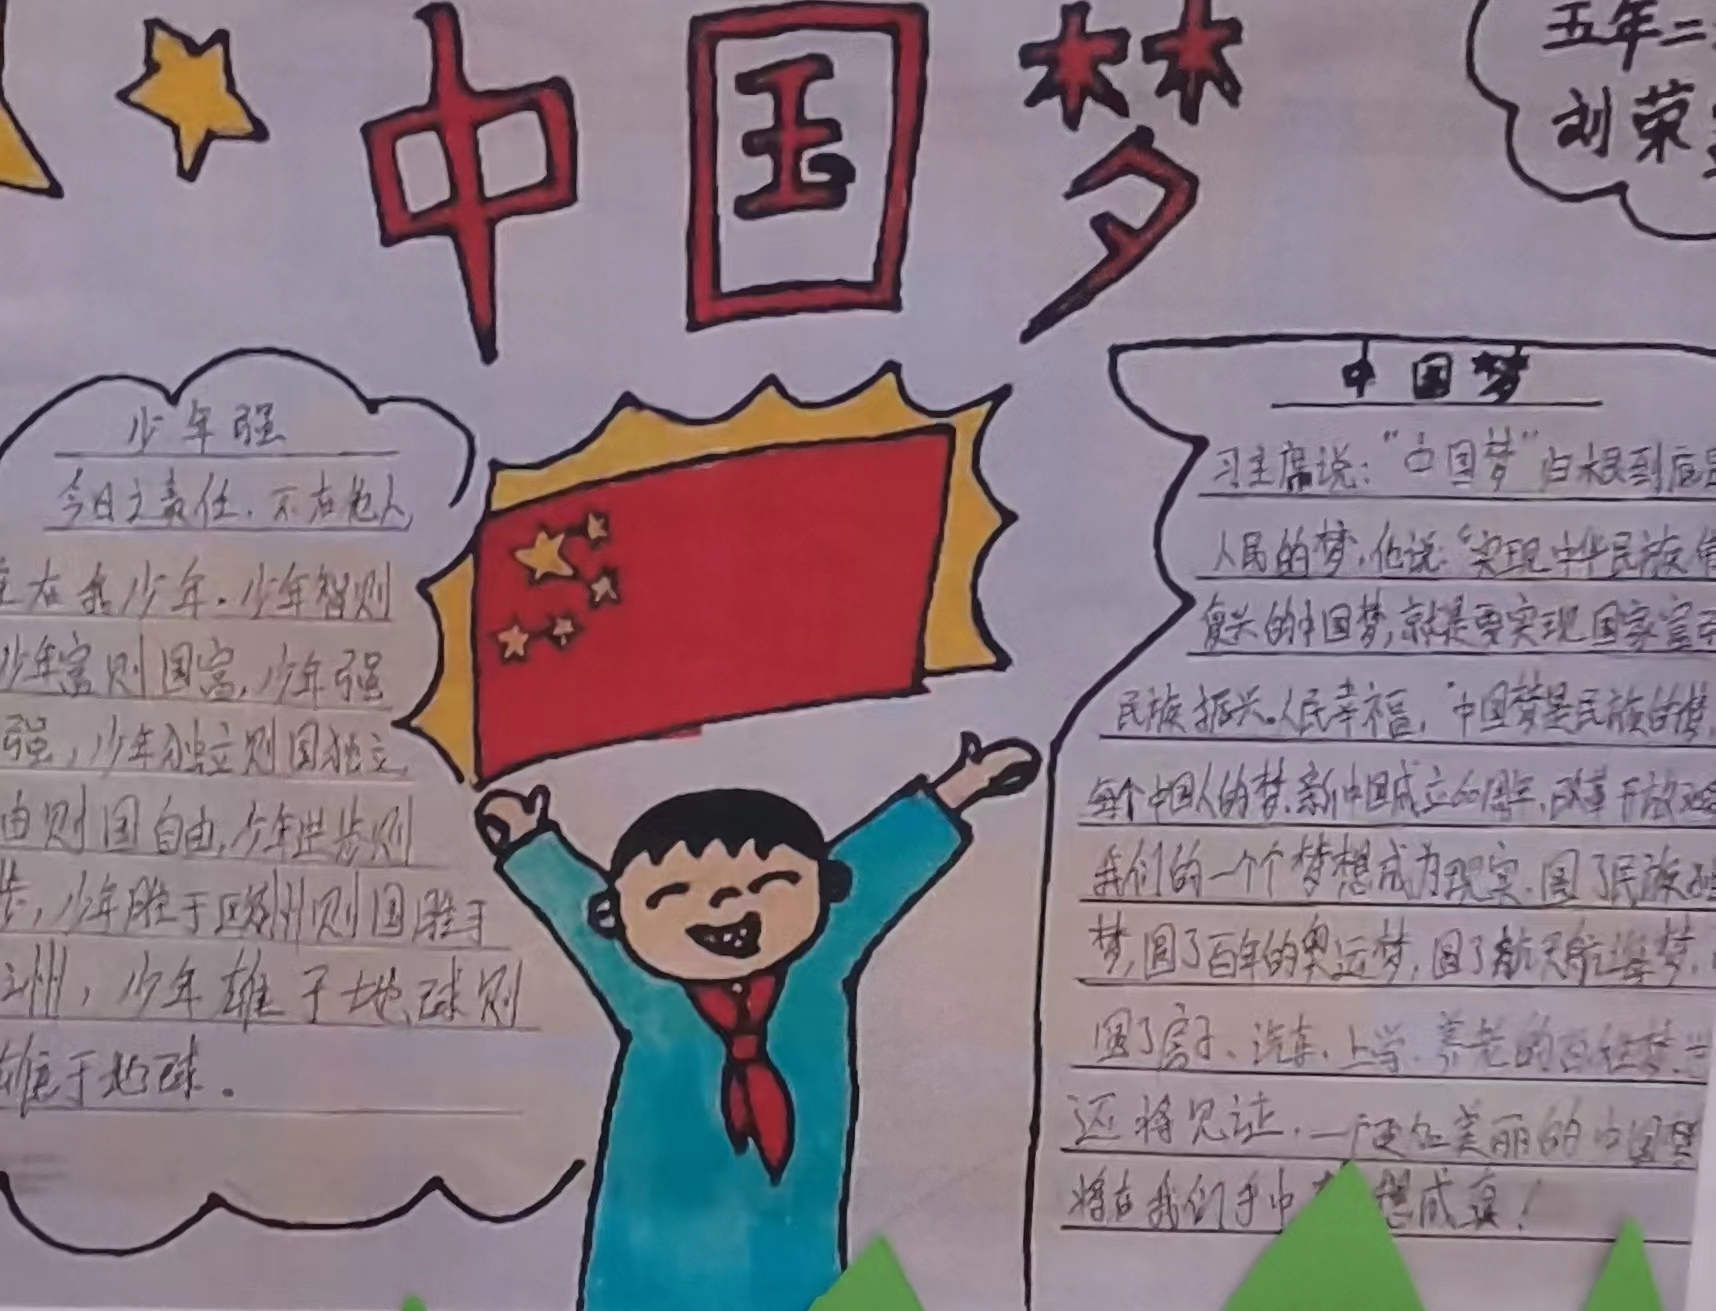 中国梦
五年二
刘荣
少年强
今日之责任,不在他人,
在我少年。少年智则
少年富则国富,少年强
强,少年独立则国独立,
由则国自由,少年进步则
步,少年胜于欧洲则国胜于
洲,少年雄于地球则
雄于地球。
中国梦
习主席说:“中国梦”归根到底是
人民的梦,他说:“实现中华民族
复兴的中国梦,就是要实现国家富
民族振兴。人民幸福,“中国梦是民族的梦,
每个中国人的梦,新中国成立60周年,改革开放
我们的一个个梦想成为现实,圆了民族
梦,圆了百年的奥运梦,圆了航天航海梦,
圆了房子、汽车、上学、养老的百姓梦,
还将见证,一广正如美丽的中国
将在我们手中 想成真!